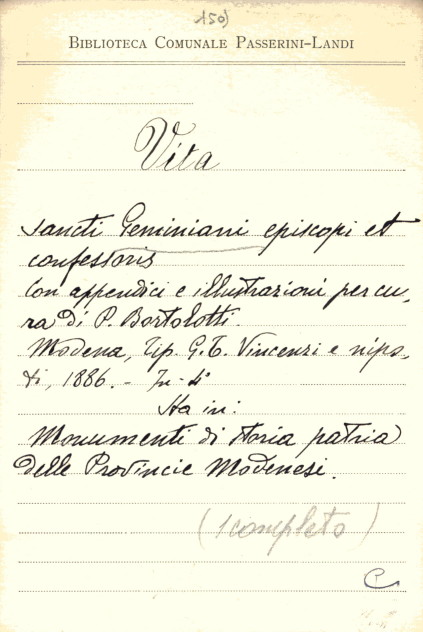 150)
BIBLIOTECA COMUNALE PASSERINI-LANDI
Vita
sancti Geminiani episcopi et
confessoris
Con appendici e illustrazioni per cu-
ra di P. Bortolotti.
Modena, Tip. G. T. Vincenzi e nipo-
ti, 1886. - In-4°
Sta in:
Monumenti di storia patria
delle Provincie Modenesi.
(completo)
C